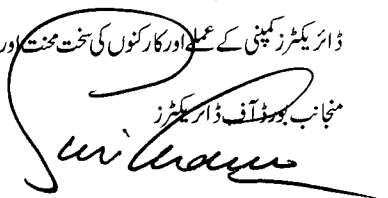 ڈائریکٹرز کمپنی کے عملے اور کارکنوں کی سخت محنت اور
منجانب بورڈ آف ڈائریکٹرز